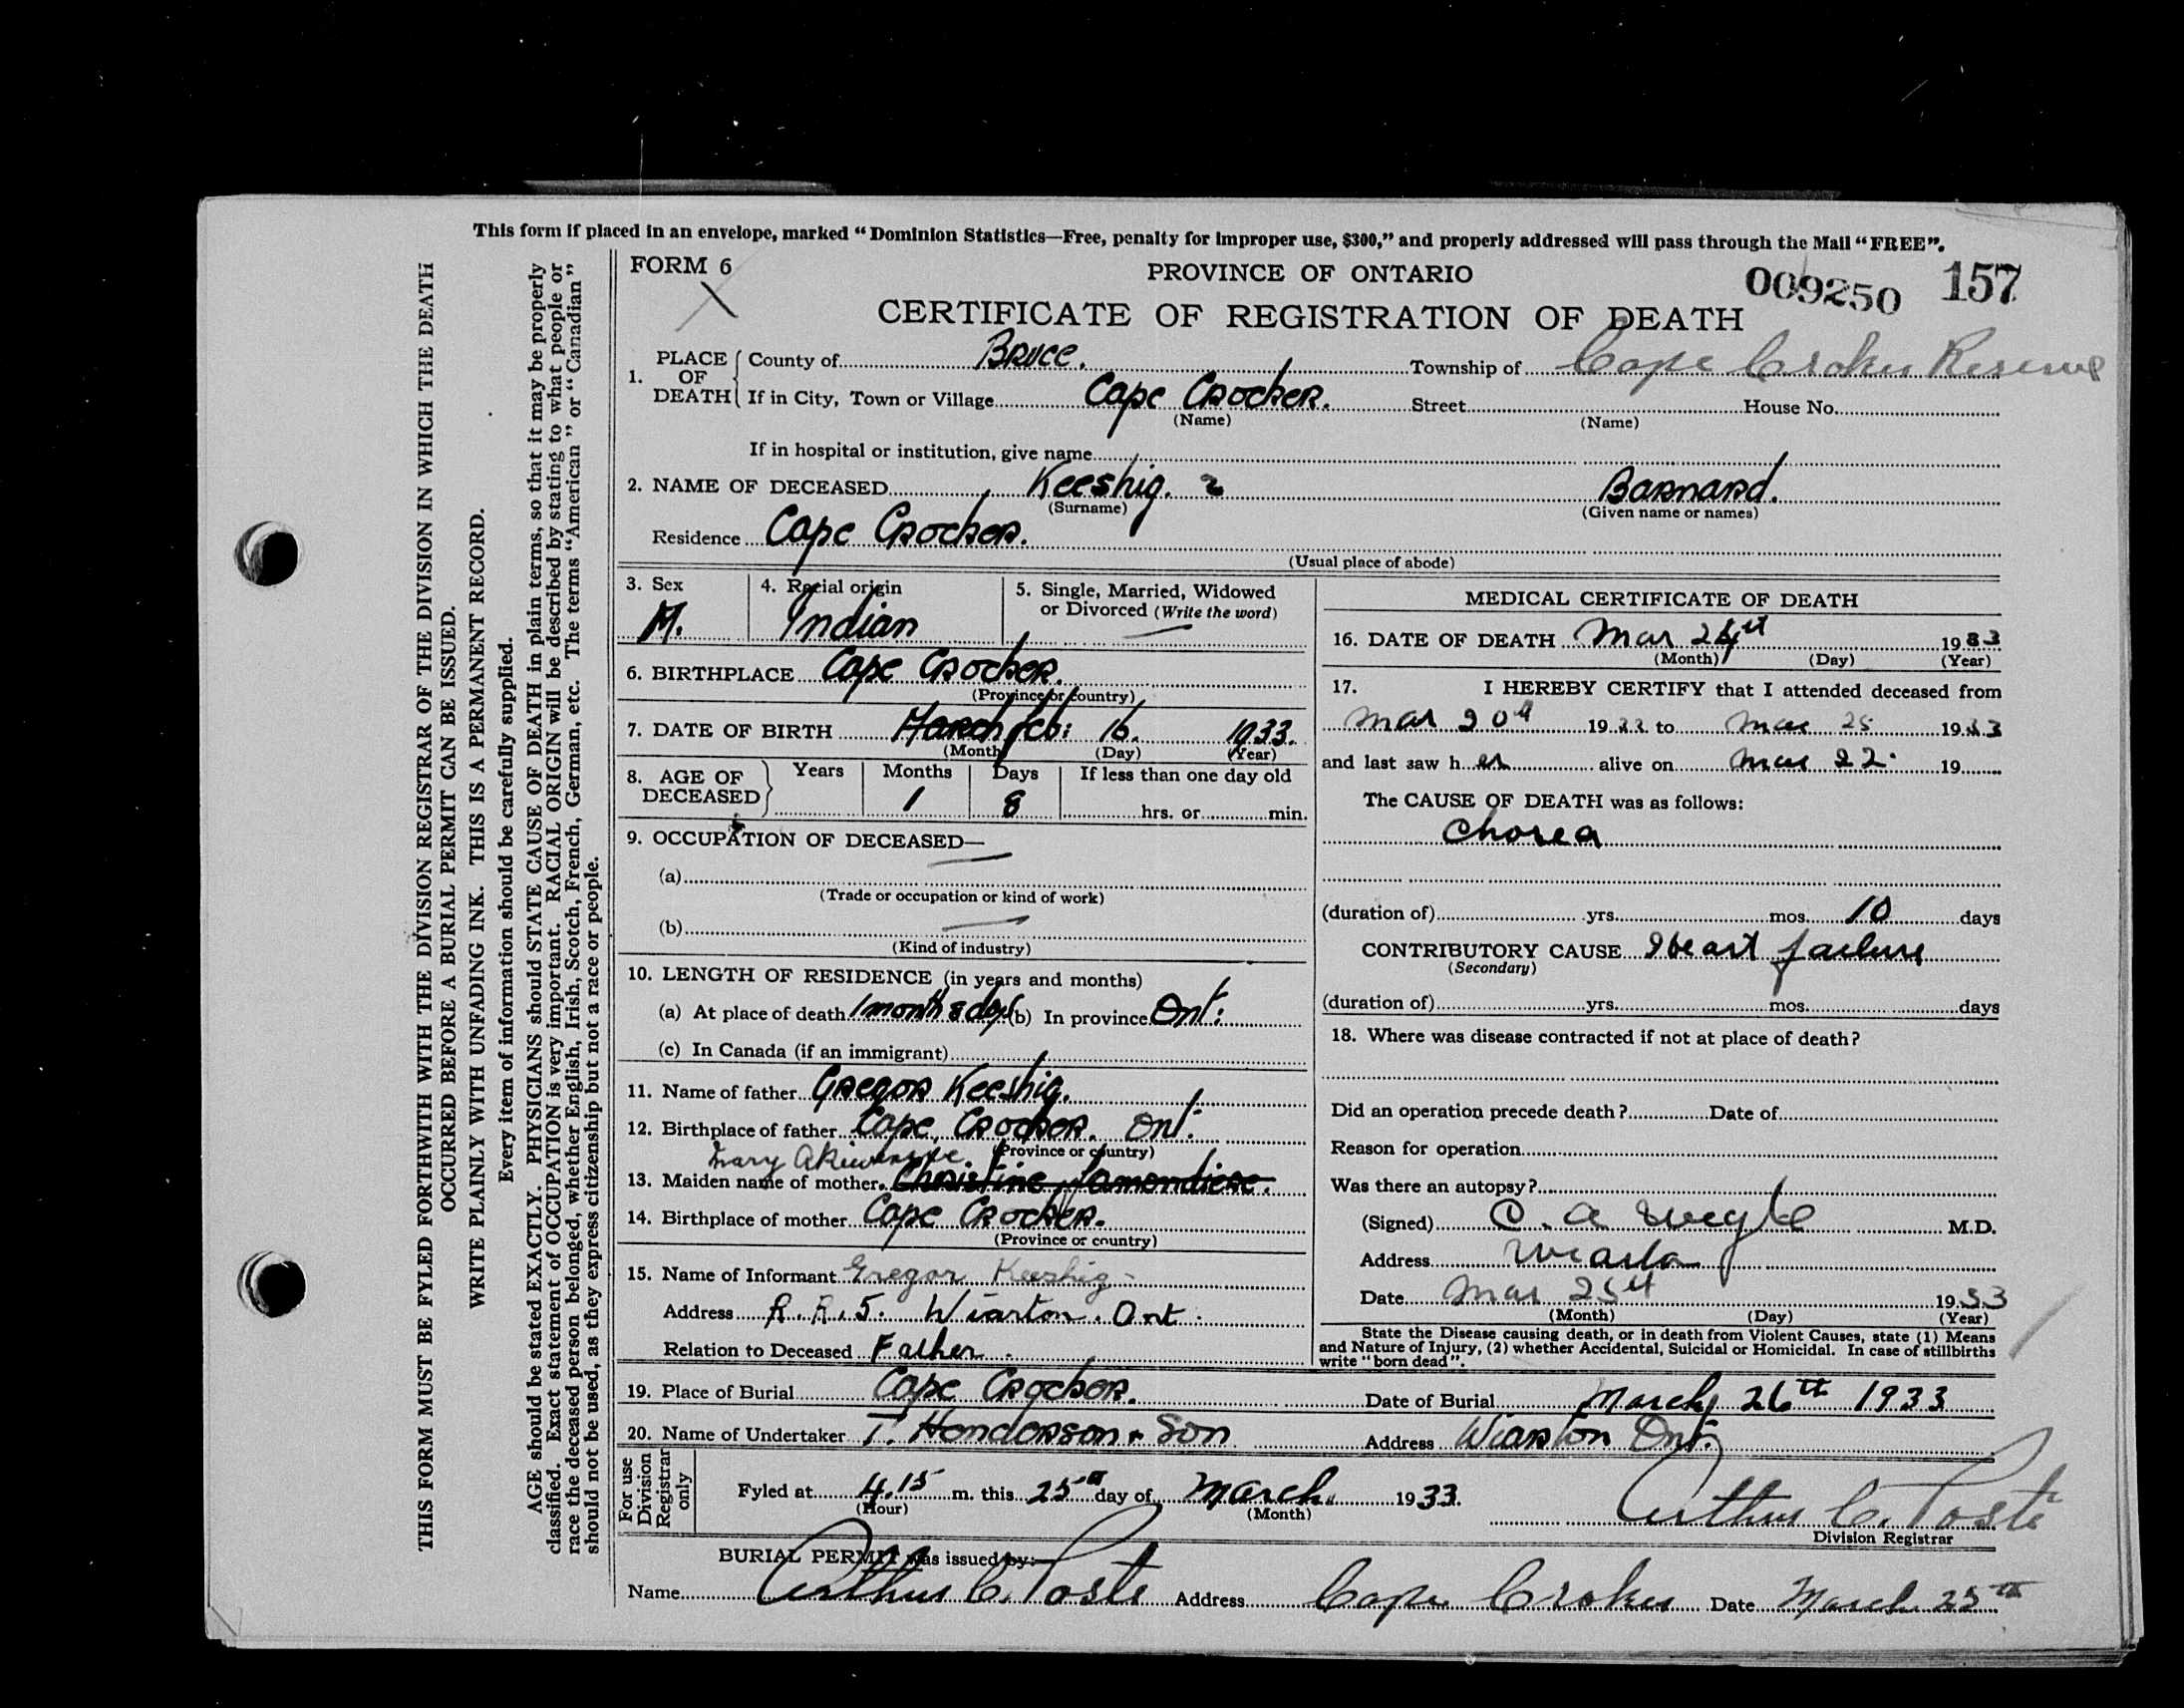 This form if placed in an envelope, marked “Dominion Statistics—Free, penalty for improper use, $300,” and properly addressed will pass through the Mail “FREE”.
THIS FORM MUST BE FYLED FORTHWITH WITH THE DIVISION REGISTRAR OF THE DIVISION IN WHICH THE DEATH
OCCURRED BEFORE A BURIAL PERMIT CAN BE ISSUED.
WRITE PLAINLY WITH UNFADING INK. THIS IS A PERMANENT RECORD.
Every item of information should be carefully supplied.
AGE should be stated EXACTLY. PHYSICIANS should STATE CAUSE OF DEATH in plain terms, so that it may be properly
classified. Exact statement of OCCUPATION is very important. RACIAL ORIGIN will be described by stating to what people or
race the deceased person belonged, whether English, Irish, Scotch, French, German, etc. The terms “American” or “Canadian”
should not be used, as they express citizenship but not a race or people.
FORM 6
PROVINCE OF ONTARIO
009250 157
CERTIFICATE OF REGISTRATION OF DEATH
1. PLACE OF DEATH { County of Bruce. Township of Cape Croker Reserve
If in City, Town or Village Cape Crocker. Street House No.
(Name) (Name)
If in hospital or institution, give name
2. NAME OF DECEASED Keeshig. 2 Barnard.
(Surname) (Given name or names)
Residence Cape Crocker.
(Usual place of abode)
3. Sex M. 4. Racial origin Indian 5. Single, Married, Widowed
or Divorced (Write the word) —
6. BIRTHPLACE Cape Crocker.
(Province or country)
7. DATE OF BIRTH March Feb: 16. 1933.
(Month) (Day) (Year)
8. AGE OF DECEASED } Years Months Days If less than one day old
1 8 hrs. or min.
9. OCCUPATION OF DECEASED—
(a) —
(Trade or occupation or kind of work)
(b) —
(Kind of industry)
10. LENGTH OF RESIDENCE (in years and months)
(a) At place of death 1 month 8 days (b) In province Ont:
(c) In Canada (if an immigrant)
11. Name of father Gregor Keeshig.
12. Birthplace of father Cape Crocker. Ont.
(Province or country)
Mary Akiwenzie.
13. Maiden name of mother. Christine Lamondiere.
14. Birthplace of mother Cape Crocker.
(Province or country)
15. Name of Informant Gregor Keeshig
Address R.R.5. Wiarton. Ont.
Relation to Deceased Father.
MEDICAL CERTIFICATE OF DEATH
16. DATE OF DEATH Mar 24th 1933
(Month) (Day) (Year)
17. I HEREBY CERTIFY that I attended deceased from
Mar 20th 1933 to Mar 25 1933
and last saw h er alive on Mar 22. 19
The CAUSE OF DEATH was as follows:
Chorea
(duration of) yrs. mos. 10 days
CONTRIBUTORY CAUSE Heart failure
(Secondary)
(duration of) yrs. mos. days
18. Where was disease contracted if not at place of death?
Did an operation precede death? Date of
Reason for operation
Was there an autopsy?
(Signed) C. A M.D.
Address
Date Mar 25th 1933
(Month) (Day) (Year)
State the Disease causing death, or in death from Violent Causes, state (1) Means
and Nature of Injury, (2) whether Accidental, Suicidal or Homicidal. In case of stillbirths
write “born dead”.
19. Place of Burial Cape Crocker. Date of Burial March 26th 1933
20. Name of Undertaker T. Henderson & Son Address Wiarton Ont.
For use Division Registrar only
Fyled at 4.15 m. this 25th day of March 1933. Arthur C. Poste
(Hour) (Month) Division Registrar
BURIAL PERMIT was issued by:—
Name Arthur C. Poste Address Cape Croker Date March 25th